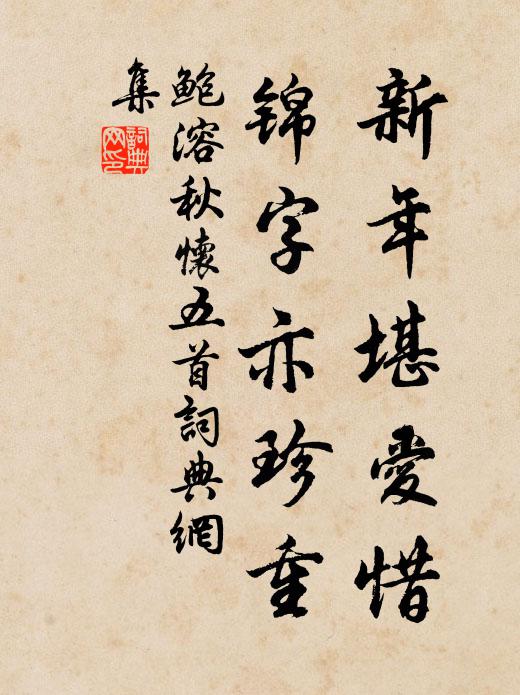 新年堪愛惜
锦字亦珍重
鲍溶秋懷五首詞典網
集
詞典
网印